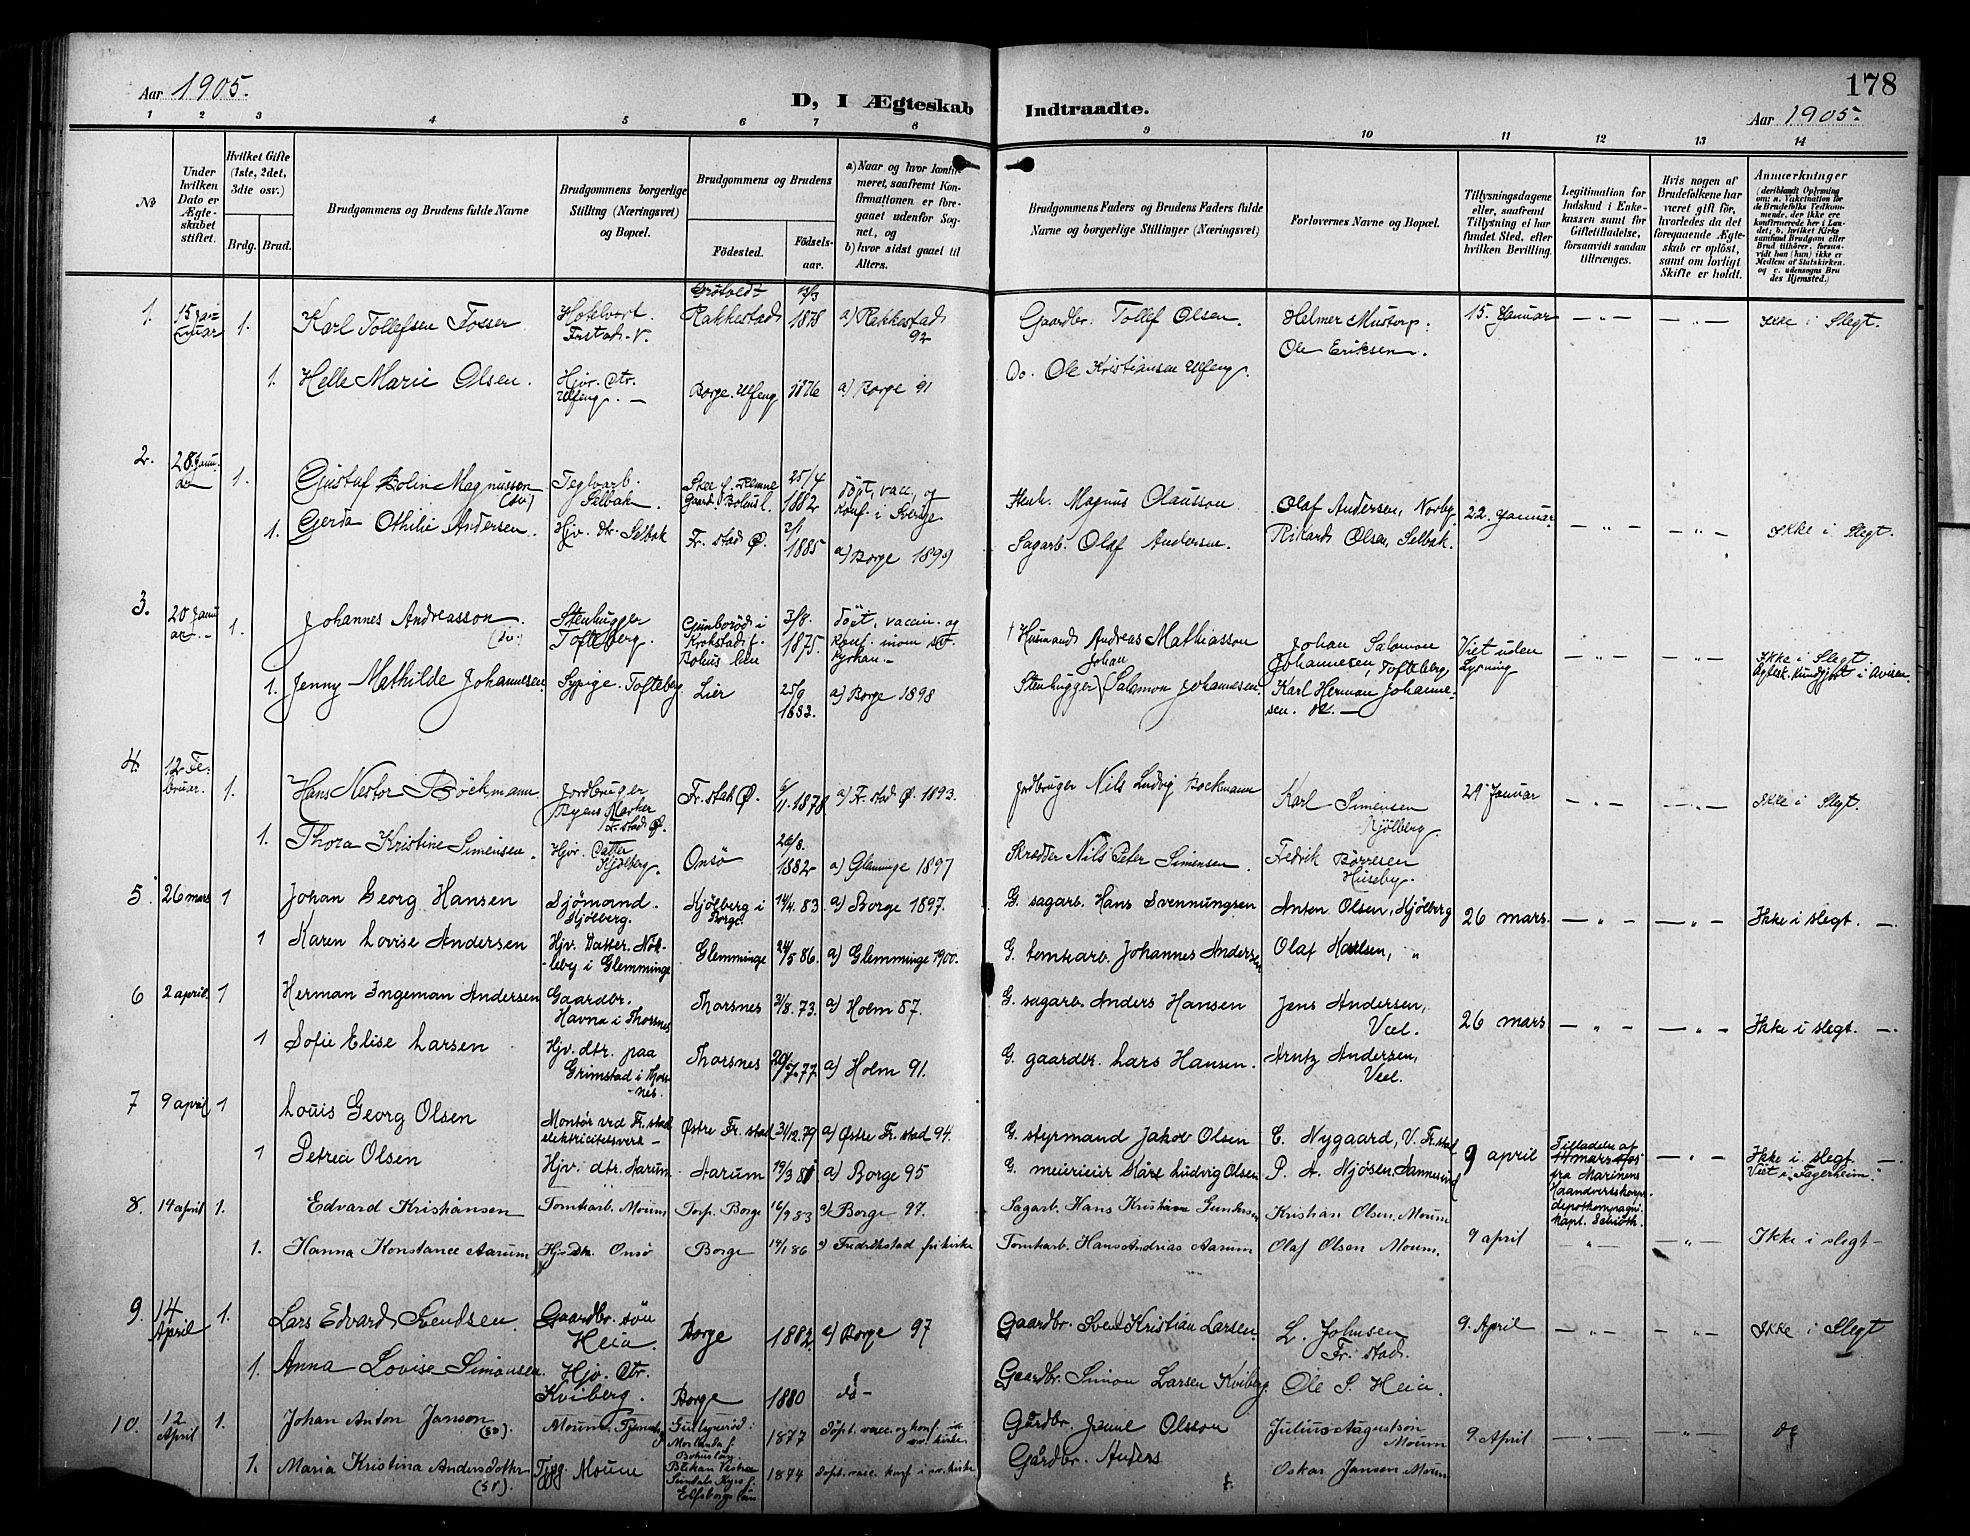 178
Aar 1905.
D, I Ægteskab Indtraadte.
Aar 1905.
1 2 3 4 5 6 7 8 9 10 11 12 13 14
No
Under hvilken Dato er Ægteskabet stiftet.
Hvilket Gifte (1ste, 2det, 3dte osv.)
Brdg. Brud.
Brudgommens og Brudens fulde Navne
Brudgommens borgerlige Stilling (Næringsvei) og Bopæl.
Brudgommens og Brudens
Fødested. Fødselsaar.
a) Naar og hvor konfirmeret, saafremt Konfirmationen er foregaaet udenfor Sognet, og
b) hvor sidst gaaet til Alters.
Brudgommens Faders og Brudens Faders fulde Navne og borgerlige Stillinger (Næringsvei)
Forlovernes Navne og Bopæl.
Tillysningsdagene eller, saafremt Tillysning ei har fundet Sted, efter hvilken Bevilling.
Legitimation for Indskud i Enkekassen samt for Giftetilladelse, forsaavidt saadan tiltrænges.
Hvis nogen af Brudefolkene har været gift før, hvorledes da det foregaaende Ægteskab er opløst, samt om lovligt Skifte er holdt.
Anmærkninger
1. 15 Januar 1. Karl Tollefsen Rakkestad 13/3 1878 a) Rakkestad 92 Gaardbr. Tollef Olsen. Helmer Mustorp. Ole Eriksen. 15. Januar — " — — " — Ikke i Slegt.
1. Helle Marie Olsen. Hjv. dtr. Ulfeng. — Borge. Ulfeng 1876 a) Borge 91 Do. Ole Kristiansen Ulfeng.
2. 28. Januar 1. Gustaf Bolin Magnusson (sv.) Teglarb. Selbak. 25/4 1882 Døpt, vacc, og konf. i Sverige Magnus Olausson. Olaf Andersen, Norby. 22. Januar — " — — " — Ikke i Slegt.
1. Gerda Othilie Andersen. Hjv. dtr. Selbak Fr. stad Ø. 1885 a) Borge 1899 Sagarb. Olaf Andersen. Rikard Olsen, Selbak.
3. 20 Januar. 1. Johannes Andreasson. (sv.) Stenhugger Tofteberg. Krokstad f. Bohus län 3/8. 1875. Døpt, vaccin. og konf. inom sv. Kyrkan. † Husmand Andreas Mathiasson Johan Salomon Johannesen, Tofteberg, Viet uden Lysning — " — — " — Ikke i Slegt Ægtesk. kundgjort i Avisen.
1. Jenny Mathilde Johannesen. Sypige. Tofteberg Lier 25/9 1882. a) Borge 1898 Stenhugger Johan Salomon Johannesen. Karl Herman Johannesen. do. —
4. 12 Februar. 1. Hans Nestor Böckmann Jordbruger Byens Marker Fr. stad Ø. Fr. stad Ø. 1878. a) Fr. stad Ø. 1893. Jordbruger Nils Ludvig Bockmann Karl Simensen Kjølberg. 29 Januar — " — — " — Ikke i Slegt.
1. Thora Kristine Simensen. Hjv. Datter Kjølberg. Onsø 26/8. 1882 a) Glemminge 1897 Skredder Nils Peter Simensen. Fredrik Börresen Huseby.
5. 26 mars 1 Johan Georg Hansen Sjømand. Kjølberg. Kjølberg i Borge 14/4. 83. a) Borge 1897. G. sagarb. Hans Svennungsen Anton Olsen, Kjølberg 26 mars. — " — — " — Ikke i slegt. —
1 Karen Lovise Andersen Hjv. Datter. Nökleby i Glemminge Glemminge 24/5 86. a) Glemminge 1900. G. tomtarb. Johannes Andersen Olaf Karlsen, "
6 2 april. 1 Herman Ingeman Andersen Gaardbr. Havna i Thorsnes Thorsnes 31/8. 73. a) Holm 87. G. sagarb. Anders Hansen Jens Andersen, Veel. 26 mars — " — — " — Ikke i slegt. —
1 Sofie Elise Larsen Hjv. dtr. paa Grimstad i Thorsnes. Thorsnes 20/7. 77. a) Holm 91. G. gaardbr. Lars Hansen. Arntz Andersen, Veel.
7 9 april 1 Louis Georg Olsen Montør ved Fr. stad elektricitetsverk — Østre Fr. stad 31/12. 79 a) Østre Fr. stad 94. G. styrmand Jakob Olsen C. Nygaard, V. Fr. stad 9 april Tilladelse af 14 mars 1905 fra Marinens Haandverkskorps depotkompagni. — " — Ikke i slegt. — Viet i "Fagerheim".
1 Petrea Olsen Hjv. dtr. Aarum Aarum 19/3 81 a) Borge 95 G. meierieier Karl Ludvig Olsen P. A. Njøsen,
8. 14 april 1. Edvard Kristiansen Tomtarb. Moum Torp. Borge 16/9 83 a) Borge 97. Sagarb. Hans Kristian Gundersen Kristian Olsen. Moum 9 april " — — " — Ikke i slegt —
1. Hanna Konstance Aarum Hjv. Dtr. Onsø Borge 14/1 86 a) Fredrikstad frikirke Tomtarb. Hans Andrias Aarum Olaf Olsen Moum.
9. 14 April 1. Lars Edvard Svendsen. Gaardbr. søn Heia. Borge 1882. a) Borge 97 Gaardbr. Svend Kristian Larsen. L. Johnsen Fr. stad. 9. April — " — — " — Ikke i Slegt
1. Anna Lovise Simonsen. Hjv. Dtr. Kviberg. Borge 1880 do — Gaardbr. Simon Larsen Kviberg. Ole S. Heia.
10. 12 April 1. Johan Anton Janson (sv). Moum. Morlanda f. Bohuslän 1877 Døpt. vacc. og konf. i sv. kirke Gårdbr. Olsson Julius Augustson Moum 9. April — " — — " —
1. Maria Kristina Andersdotter (sv). Moum Elfsborgs län 1874 Døpt. vacc. konf. i sv. kirke Gårdbr. Anders Oskar Jansen Moum